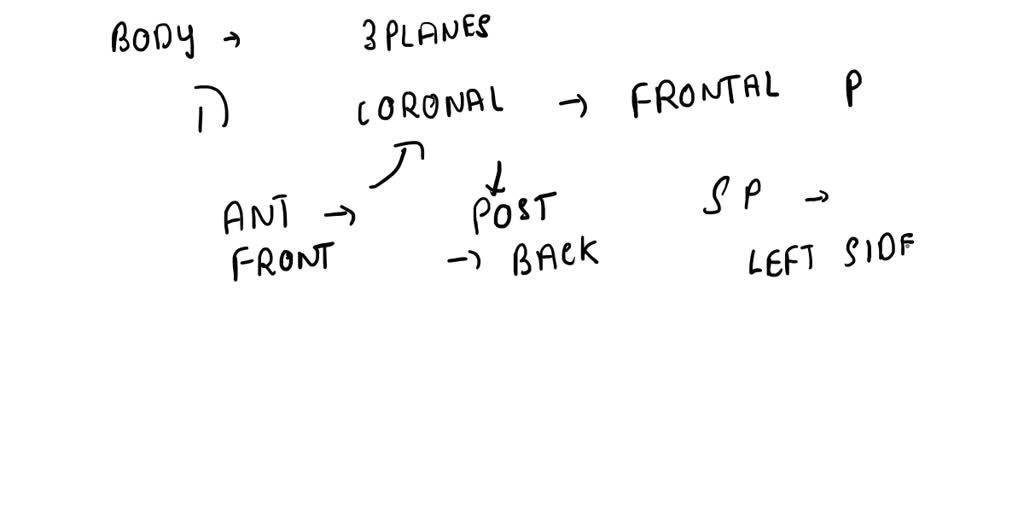 BODY → 3 PLANES
1) CORONAL → FRONTAL P
ANT → POST SP →
FRONT → BACK LEFT SIDE